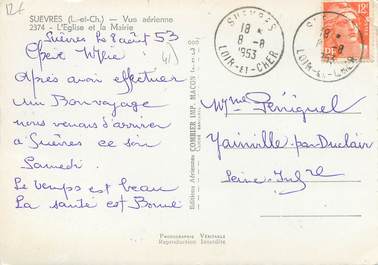 12F
SUÈVRES (L.-et-Ch.) — Vue aérienne
2374 - L'Église et la Mairie
Suèvres le 8 août 53
Chère
Après avoir effectuer
un Bon voyage
nous venons d'arriver
à Suèvres ce soir
Samedi.
Le temps est beau
La santé est Bonne
Editions Aériennes COMBIER IMP. MACON
PHOTOGRAPHIE VÉRITABLE
Reproduction Interdite
SUÈVRES
18 *
8-8
1953
LOIR-ET-CHER
SUÈVRES
18 *
8-8
1953
LOIR-ET-CHER
12F
Mme
Yainville-par-Duclair
Seine-Infre